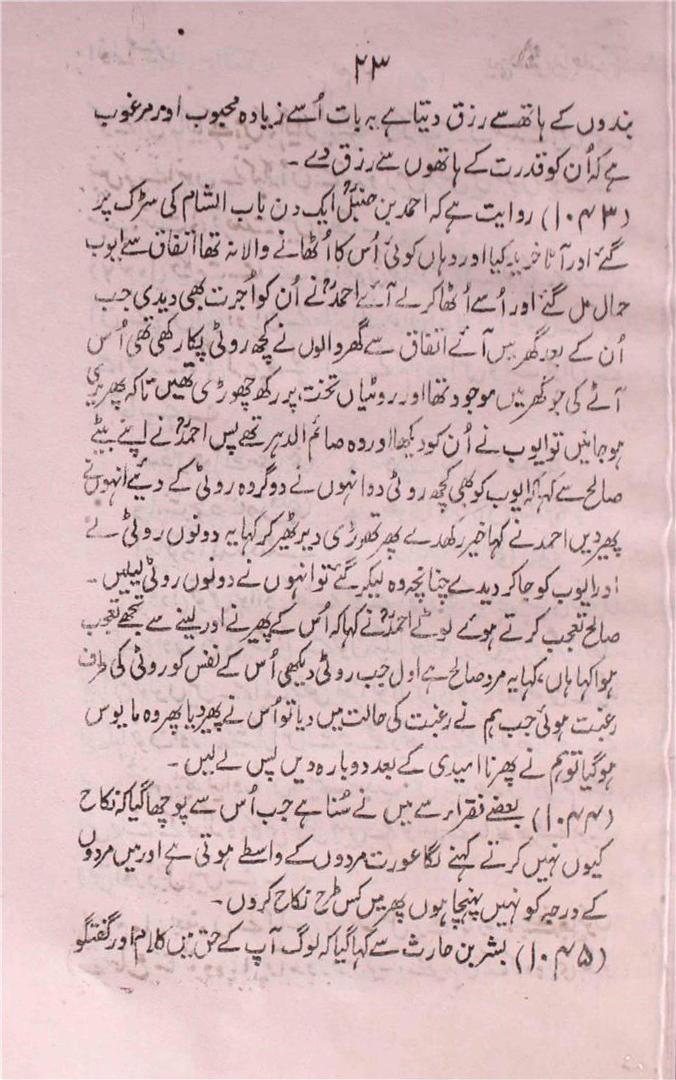 ۲۳
بندوں کے ہاتھ سے رزق دیتا ہے یہ بات اُسے زیادہ محبوب اور مرغوب
ہے کہ اُن کو قدرت کے ہاتھوں سے رزق دے ۔
(۱۰۴۳) روایت ہے کہ احمد بن حنبلؒ ایک دن باب الشام کی سڑک پر
گئے اور آٹا خرید کیا اور وہاں کوئی اُس کا اُٹھانے والا نہ تھا اتفاق سے ایوب
حمال مل گئے اور اُسے اُٹھا کر لے آئے احمدؒ نے اُن کو اُجرت بھی دیدی جب
اُن کے بعد گھر میں آئے اتفاق سے گھر والوں نے کچھ روٹی پکا رکھی تھی اُس
آٹے کی جو گھر میں موجود تھا اور روٹیاں تخت پر رکھ چھوڑی تھیں تاکہ پھریری
ہو جائیں تو ایوب نے اُن کو دیکھا اور وہ صائم الدہر تھے پس احمدؒ نے اپنے بیٹے
صالح سے کہا کہ ایوب کو بھی کچھ روٹی دو انہوں نے دو گردہ روٹی کے دیئے انہوں نے
پھیر دیں احمد نے کہا خیر رکھدے پھر تھوڑی دیر ٹھیر کر کہا یہ دونوں روٹی لے
اور ایوب کو جا کر دیدے چنانچہ وہ لیکر گئے تو انہوں نے دونوں روٹی لیلیں ۔
صالح تعجب کرتے ہوئے لوٹے احمدؒ نے کہا کہ اُس کے پھیرنے اور لینے سے تجھے تعجب
ہوا کہا ہاں، کہا یہ مرد صالح ہے اول جب روٹی دیکھی اُس کے نفس کو روٹی کی طرف
رغبت ہوئی جب ہم نے رغبت کی حالت میں دیا تو اُس نے پھیر دیا پھر وہ مایوس
ہو گیا تو ہم نے پھر نا امیدی کے بعد دوبارہ دیں پس لے لیں ۔
(۱۰۴۴) بعضے فقراء سے میں نے سُنا ہے جب اُس سے پوچھا گیا کہ نکاح
کیوں نہیں کرتے کہنے لگا عورت مردوں کے واسطے ہوتی ہے اور میں مردوں
کے درجہ کو نہیں پہنچا ہوں پھر میں کس طرح نکاح کروں ۔
(۱۰۴۵) بشر بن حارث سے کہا گیا کہ لوگ آپ کے حق میں کلام اور گفتگو